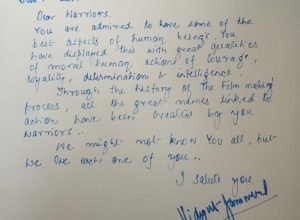 Dear Warriors.
You are admired to have some of the
best aspects of human being's. You
have displayed this with great qualities
of moral human, actions of courage,
loyality, determination & intelligence.
Through the history of the Film making
process, all the great names linked to
action have been created by you
warriors..
We might not know you all, but
we owe each one of you..
I salute you
Vidyut Jammwal